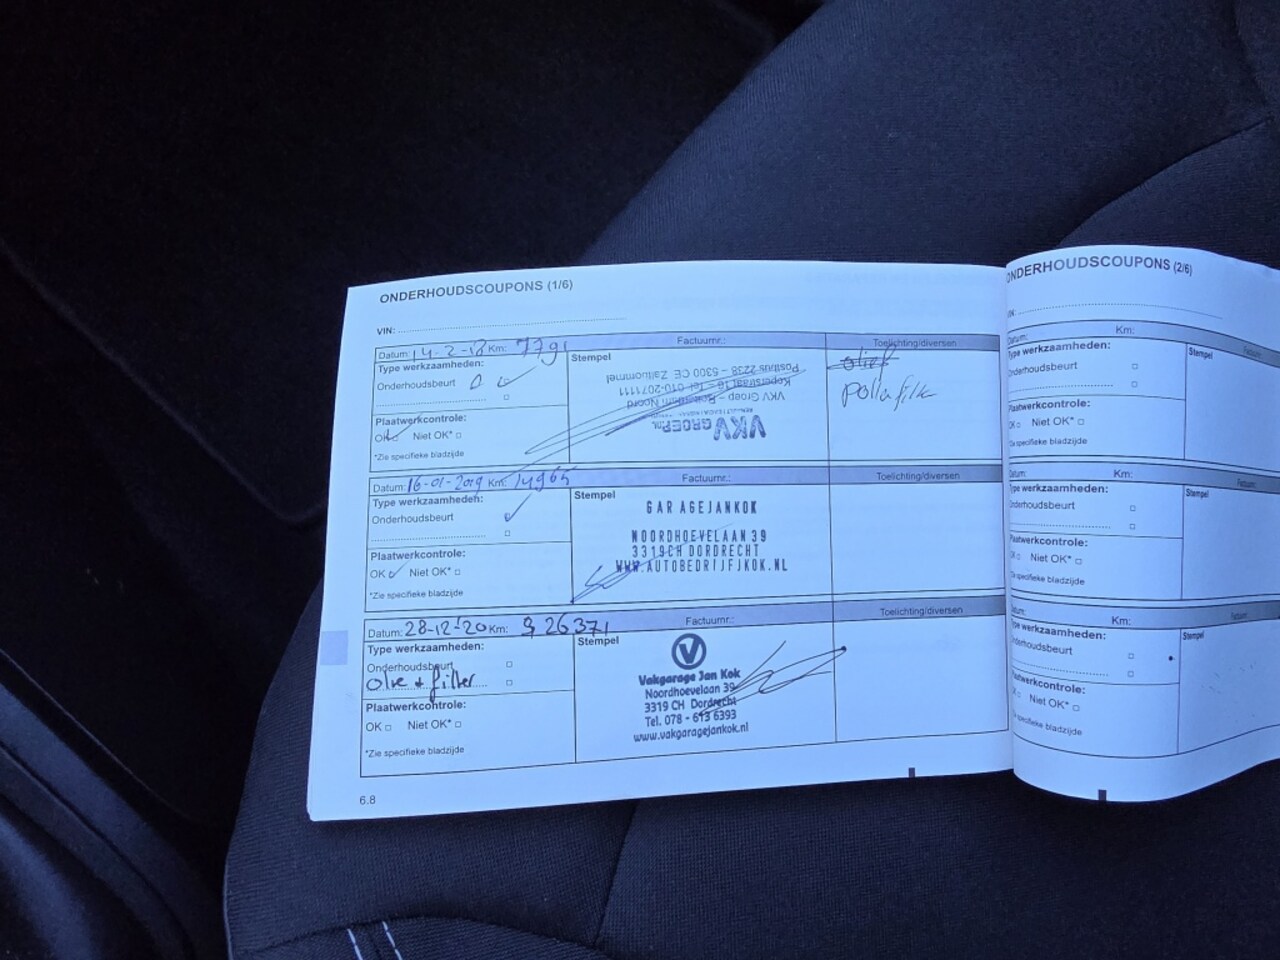 ONDERHOUDSCOUPONS (1/6)
VIN:
Datum: 14-2-18 Km: 7791 Factuurnr.: Toelichting/diversen
Type werkzaamheden:
Onderhoudsbeurt
Stempel
Plaatwerkcontrole:
OK Niet OK*
*Zie specifieke bladzijde
Postbus 2238 - 5300 CE Zaltbommel
Koperstraat 16 - Tel. 010-2071111
VKV Groep - Rotterdam Noord
VKV GROEP.NL
olief
Datum: 16-01-2019 Km: 14965 Factuurnr.: Toelichting/diversen
Type werkzaamheden:
Onderhoudsbeurt
Stempel
Plaatwerkcontrole:
OK Niet OK*
*Zie specifieke bladzijde
GARAGEJANKOK
NOORDHOEVELAAN 39
3319CH DORDRECHT
WWW.AUTOBEDRIJFJKOK.NL
Datum: 28-12-20 Km: 26371 Factuurnr.: Toelichting/diversen
Type werkzaamheden:
Onderhoudsbeurt
Olie + filter
Stempel
Plaatwerkcontrole:
OK Niet OK*
*Zie specifieke bladzijde
V
Vakgarage Jan Kok
Noordhoevelaan 39
3319 CH Dordrecht
Tel. 078 - 613 6393
www.vakgaragejankok.nl
6.8
ONDERHOUDSCOUPONS (2/6)
Datum: Km:
Type werkzaamheden:
Onderhoudsbeurt
Stempel
Plaatwerkcontrole:
OK Niet OK*
*Zie specifieke bladzijde
Km: Factuurnr.
Type werkzaamheden:
Onderhoudsbeurt
Stempel
Plaatwerkcontrole:
OK Niet OK*
*Zie specifieke bladzijde
Datum: Km: Factuurnr.
Type werkzaamheden:
Onderhoudsbeurt
Stempel
Plaatwerkcontrole:
OK Niet OK*
*Zie specifieke bladzijde